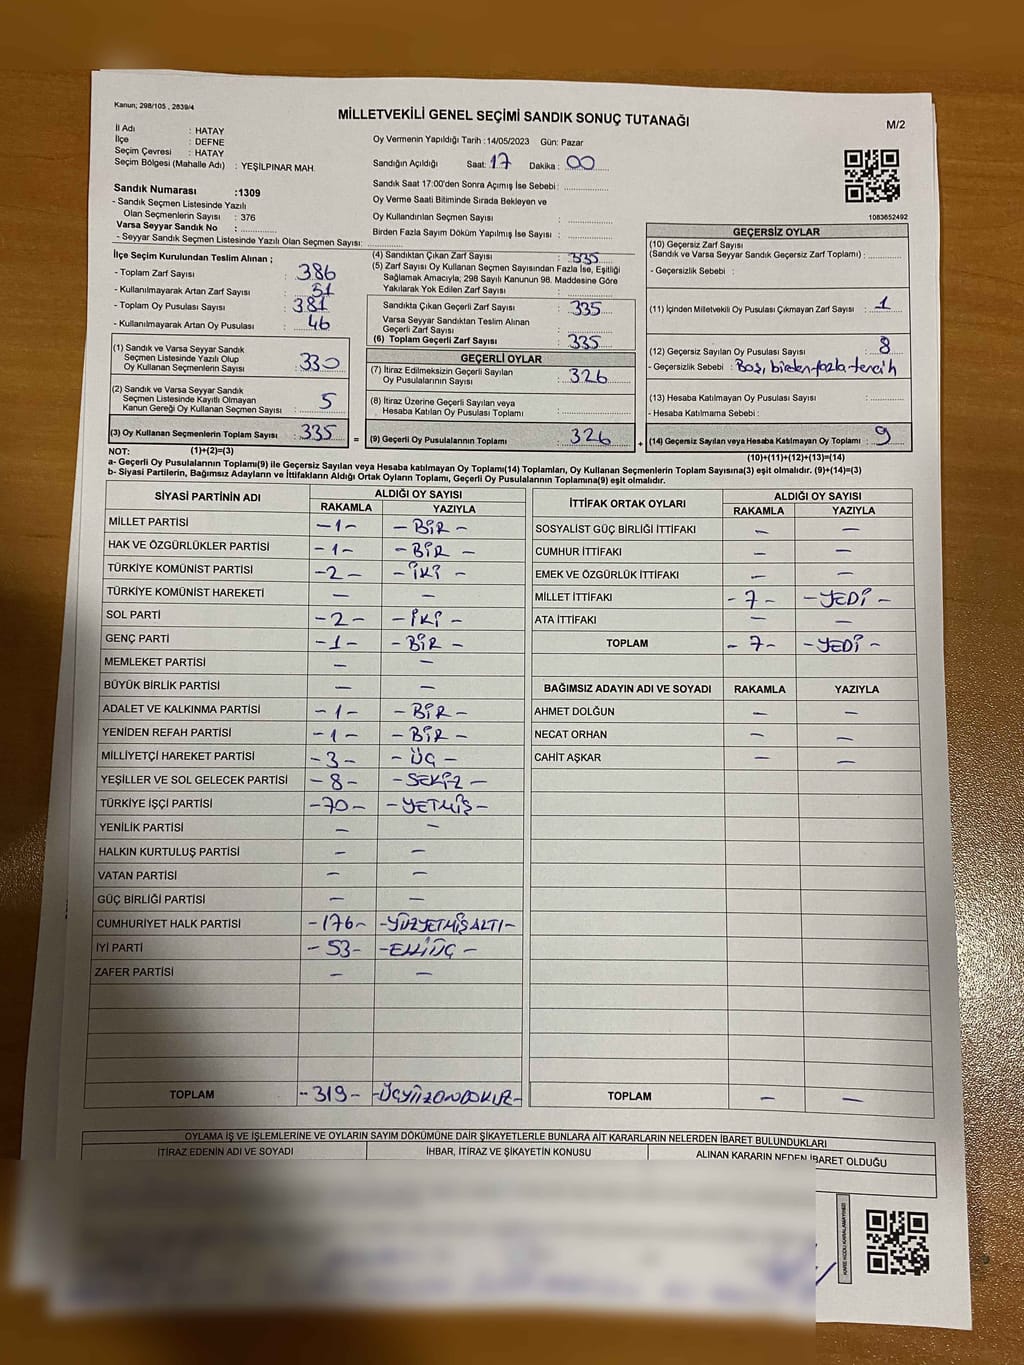 Kanun; 298/105 , 2839/4
MİLLETVEKİLİ GENEL SEÇİMİ SANDIK SONUÇ TUTANAĞI
M/2
İl Adı : HATAY
İlçe : DEFNE
Seçim Çevresi : HATAY
Seçim Bölgesi (Mahalle Adı) : YEŞİLPINAR MAH.
Oy Vermenin Yapıldığı Tarih : 14/05/2023 Gün: Pazar
Sandığın Açıldığı Saat: 17 Dakika : 00
Sandık Saat 17:00'den Sonra Açımış İse Sebebi :
Oy Verme Saati Bitiminde Sırada Bekleyen ve
Oy Kullandırılan Seçmen Sayısı :
Birden Fazla Sayım Döküm Yapılmış İse Sayısı :
1083652492
Sandık Numarası :1309
- Sandık Seçmen Listesinde Yazılı
Olan Seçmenlerin Sayısı : 376
Varsa Seyyar Sandık No :
- Seyyar Sandık Seçmen Listesinde Yazılı Olan Seçmen Sayısı:
İlçe Seçim Kurulundan Teslim Alınan ;
- Toplam Zarf Sayısı : 386
- Kullanılmayarak Artan Zarf Sayısı : 51
- Toplam Oy Pusulası Sayısı : 381
- Kullanılmayarak Artan Oy Pusulası : 46
(1) Sandık ve Varsa Seyyar Sandık
Seçmen Listesinde Yazılı Olup
Oy Kullanan Seçmenlerin Sayısı : 330
(2) Sandık ve Varsa Seyyar Sandık
Seçmen Listesinde Kayıtlı Olmayan
Kanun Gereği Oy Kullanan Seçmen Sayısı : 5
(3) Oy Kullanan Seçmenlerin Toplam Sayısı : 335
(4) Sandıktan Çıkan Zarf Sayısı : 335
(5) Zarf Sayısı Oy Kullanan Seçmen Sayısından Fazla İse, Eşitliği
Sağlamak Amacıyla; 298 Sayılı Kanunun 98. Maddesine Göre
Yakılarak Yok Edilen Zarf Sayısı :
Sandıkta Çıkan Geçerli Zarf Sayısı : 335
Varsa Seyyar Sandıktan Teslim Alınan
Geçerli Zarf Sayısı :
(6) Toplam Geçerli Zarf Sayısı : 335
GEÇERLİ OYLAR
(7) İtiraz Edilmeksizin Geçerli Sayılan
Oy Pusulalarının Sayısı : 326
(8) İtiraz Üzerine Geçerli Sayılan veya
Hesaba Katılan Oy Pusulası Toplamı :
= (9) Geçerli Oy Pusulalarının Toplamı : 326
GEÇERSİZ OYLAR
(10) Geçersiz Zarf Sayısı
(Sandık ve Varsa Seyyar Sandık Geçersiz Zarf Toplamı) :
- Geçersizlik Sebebi :
(11) İçinden Milletvekili Oy Pusulası Çıkmayan Zarf Sayısı : 1
(12) Geçersiz Sayılan Oy Pusulası Sayısı : 8
- Geçersizlik Sebebi : Boş, birden fazla tercih
(13) Hesaba Katılmayan Oy Pusulası Sayısı :
- Hesaba Katılmama Sebebi :
+ (14) Geçersiz Sayılan veya Hesaba Katılmayan Oy Toplamı : 9
NOT: (1)+(2)=(3)
(10)+(11)+(12)+(13)=(14)
a- Geçerli Oy Pusulalarının Toplamı(9) ile Geçersiz Sayılan veya Hesaba katılmayan Oy Toplamı(14) Toplamları, Oy Kullanan Seçmenlerin Toplam Sayısına(3) eşit olmalıdır. (9)+(14)=(3)
b- Siyasi Partilerin, Bağımsız Adayların ve İttifakların Aldığı Ortak Oyların Toplamı, Geçerli Oy Pusulalarının Toplamına(9) eşit olmalıdır.
SİYASİ PARTİNİN ADI ALDIĞI OY SAYISI
RAKAMLA YAZIYLA
MİLLET PARTİSİ -1- -BİR-
HAK VE ÖZGÜRLÜKLER PARTİSİ -1- -BİR-
TÜRKİYE KOMÜNİST PARTİSİ -2- -İKİ-
TÜRKİYE KOMÜNİST HAREKETİ - -
SOL PARTİ -2- -İKİ-
GENÇ PARTİ -1- -BİR-
MEMLEKET PARTİSİ - -
BÜYÜK BİRLİK PARTİSİ - -
ADALET VE KALKINMA PARTİSİ -1- -BİR-
YENİDEN REFAH PARTİSİ -1- -BİR-
MİLLİYETÇİ HAREKET PARTİSİ -3- -ÜÇ-
YEŞİLLER VE SOL GELECEK PARTİSİ -8- -SEKİZ-
TÜRKİYE İŞÇİ PARTİSİ -70- -YETMİŞ-
YENİLİK PARTİSİ - -
HALKIN KURTULUŞ PARTİSİ - -
VATAN PARTİSİ - -
GÜÇ BİRLİĞİ PARTİSİ - -
CUMHURİYET HALK PARTİSİ -176- -YÜZYETMİŞALTI-
İYİ PARTİ -53- -ELLİÜÇ-
ZAFER PARTİSİ - -
TOPLAM -319- -ÜÇYÜZONDOKUZ-
İTTİFAK ORTAK OYLARI ALDIĞI OY SAYISI
RAKAMLA YAZIYLA
SOSYALİST GÜÇ BİRLİĞİ İTTİFAKI - -
CUMHUR İTTİFAKI - -
EMEK VE ÖZGÜRLÜK İTTİFAKI - -
MİLLET İTTİFAKI -7- -YEDİ-
ATA İTTİFAKI - -
TOPLAM -7- -YEDİ-
BAĞIMSIZ ADAYIN ADI VE SOYADI RAKAMLA YAZIYLA
AHMET DOLĞUN - -
NECAT ORHAN - -
CAHİT AŞKAR - -
TOPLAM - -
OYLAMA İŞ VE İŞLEMLERİNE VE OYLARIN SAYIM DÖKÜMÜNE DAİR ŞİKAYETLERLE BUNLARA AİT KARARLARIN NELERDEN İBARET BULUNDUKLARI
İTİRAZ EDENİN ADI VE SOYADI İHBAR, İTİRAZ VE ŞİKAYETİN KONUSU ALINAN KARARIN NEDEN İBARET OLDUĞU
KARE KODU KARALAMAYINIZ!